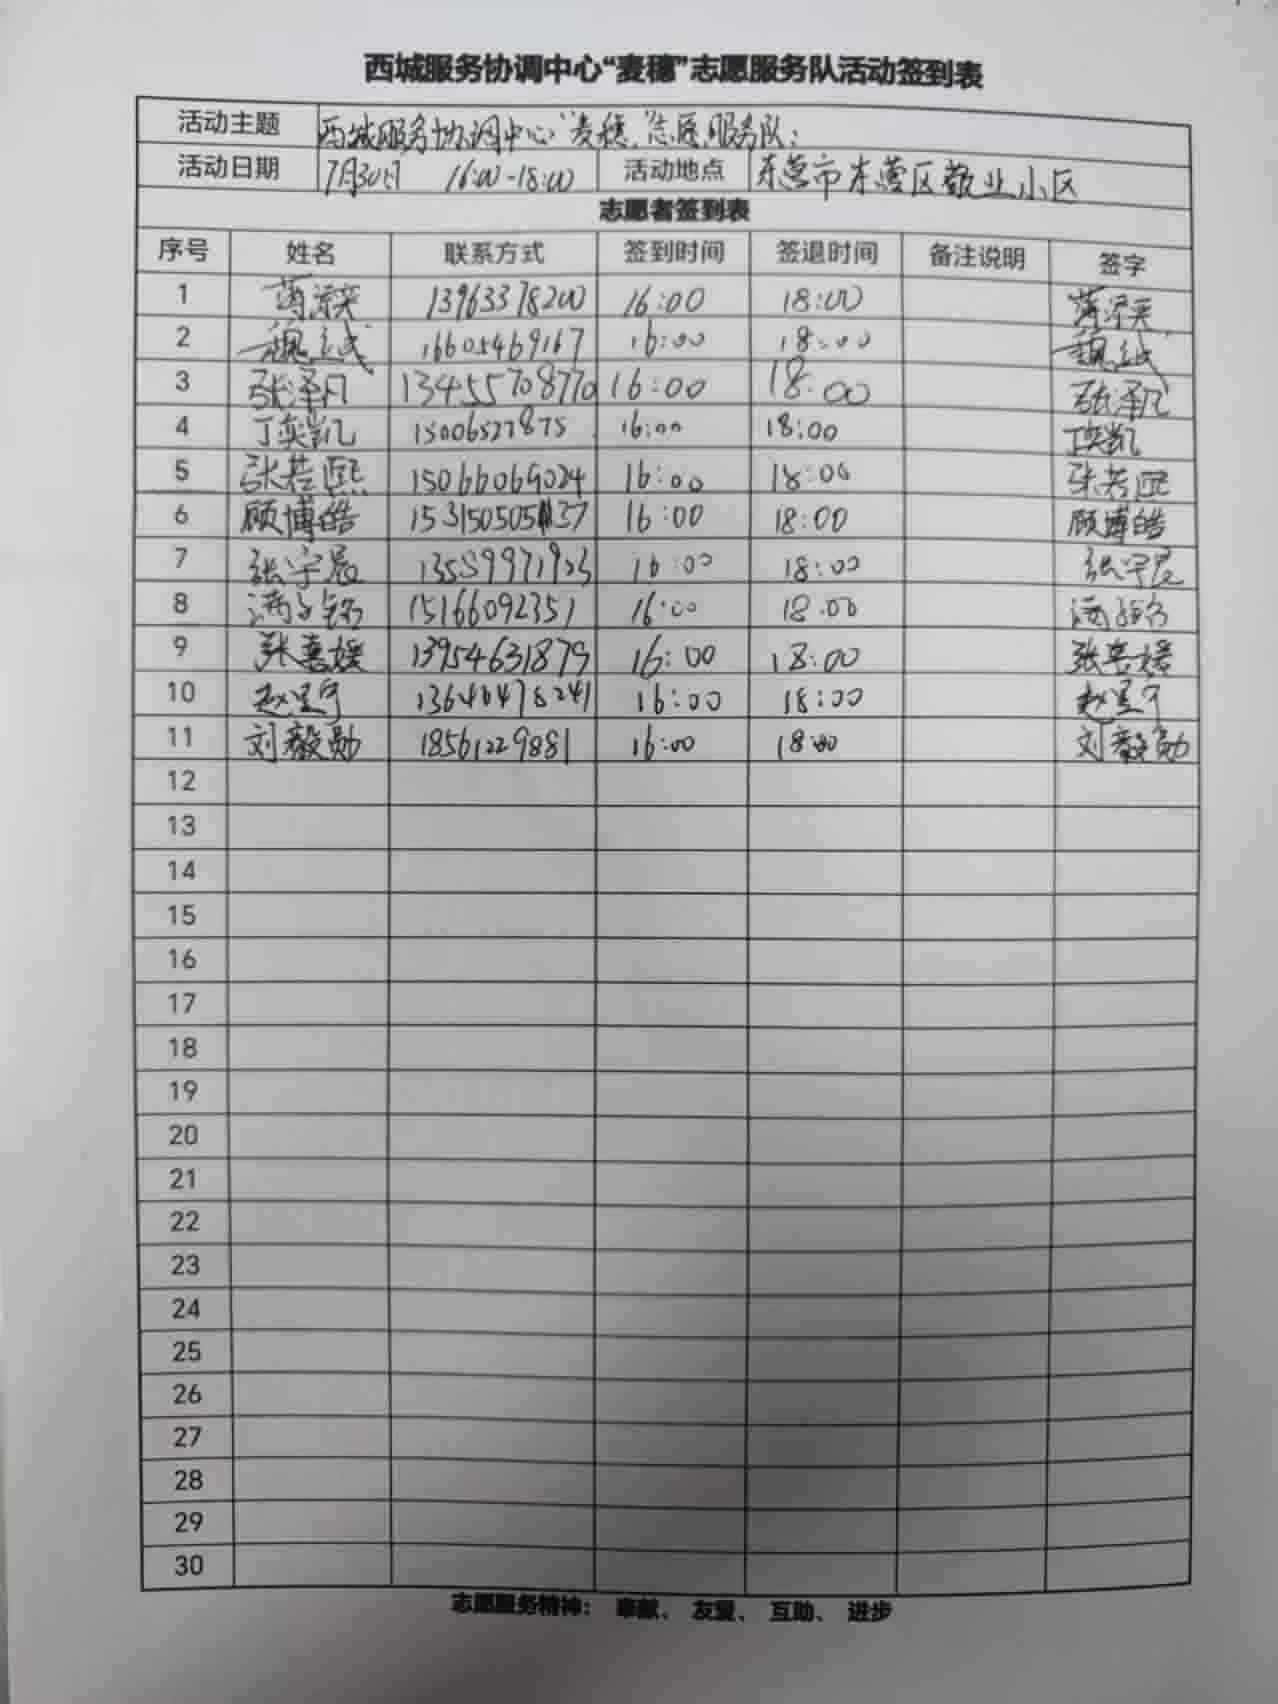 西城服务协调中心“麦穗”志愿服务队活动签到表
活动主题 西城服务协调中心“麦穗”志愿服务队:
活动日期 7月30日 16:00-18:00 活动地点 东营市东营区敬业小区
志愿者签到表
序号 姓名 联系方式 签到时间 签退时间 备注说明 签字
1 13963378200 16:00 18:00
2 16605469167 16:00 18:00
3 张泽凡 13455708770 16:00 18:00 张泽凡
4 丁奕凯 15006527875 16:00 18:00 丁奕凯
5 张若熙 15066069024 16:00 18:00 张若熙
6 顾博皓 16:00 18:00 顾博皓
7 张宇辰 16:00 18:00 张宇辰
8 15166092351 16:00 18:00
9 张喜媛 13954631879 16:00 18:00 张喜媛
10 16:00 18:00
11 刘毅勋 18561229881 16:00 18:00 刘毅勋
12
13
14
15
16
17
18
19
20
21
22
23
24
25
26
27
28
29
30
志愿服务精神： 奉献、 友爱、 互助、 进步